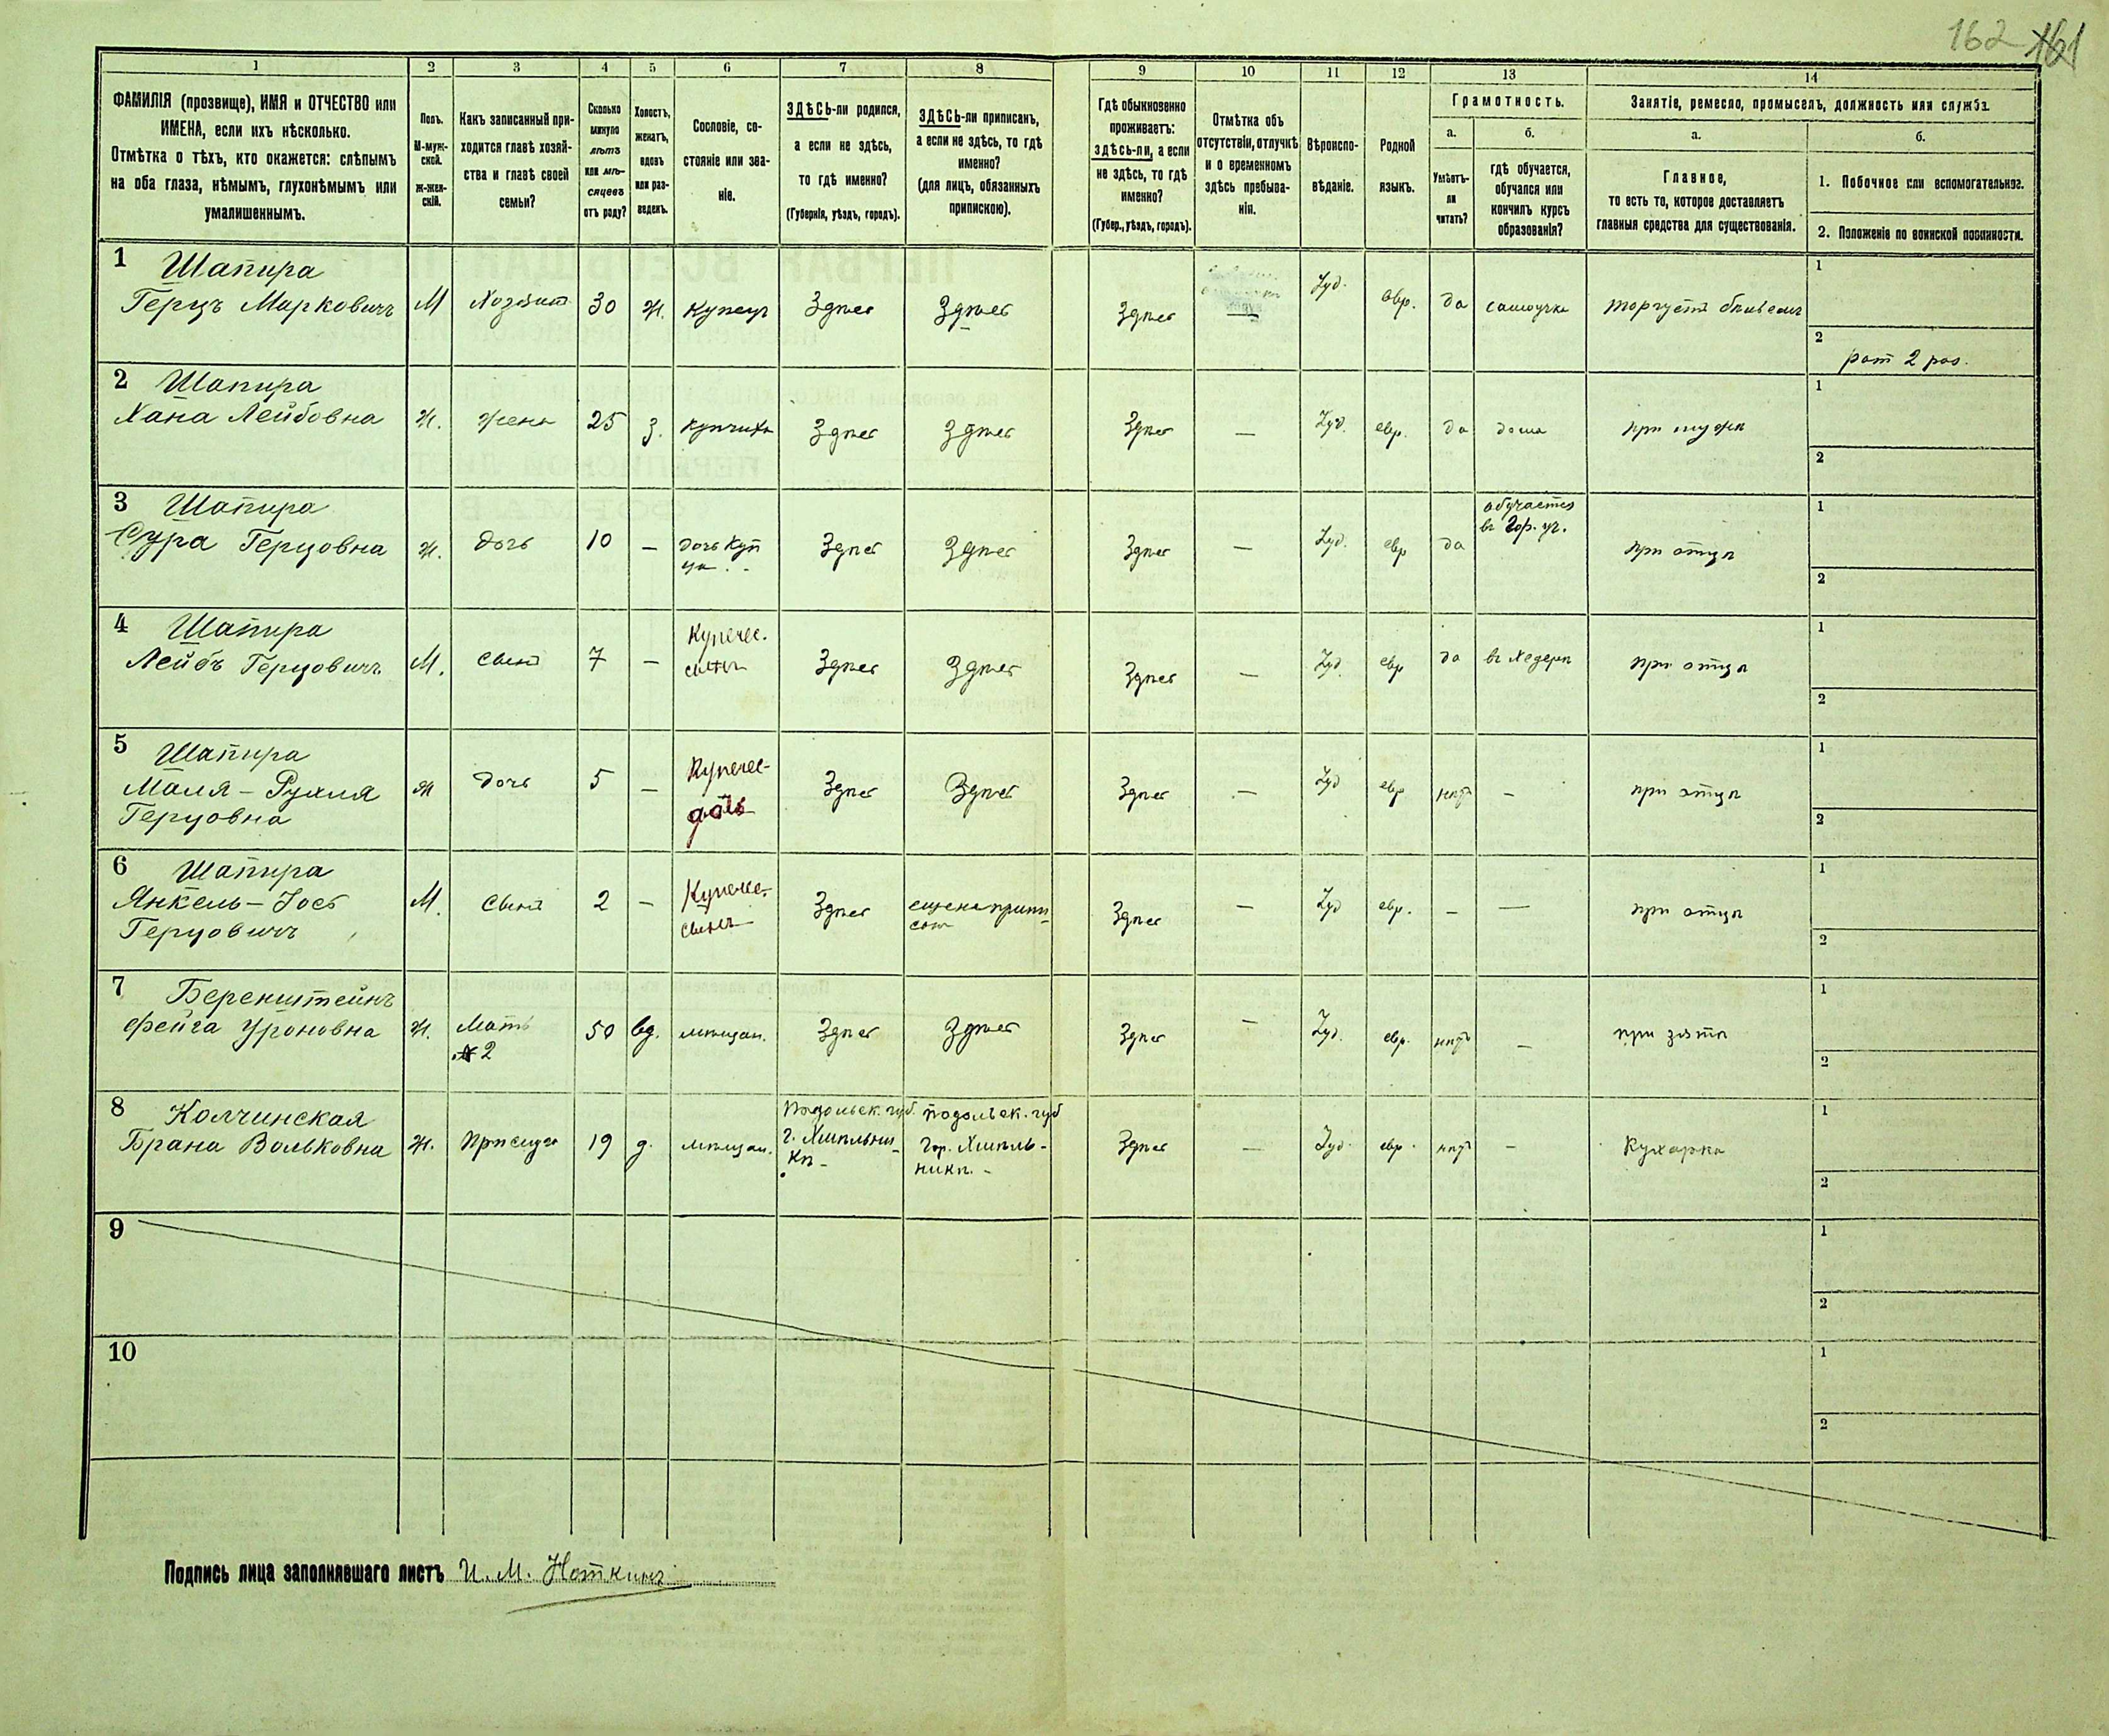 162 161
1 2 3 4 5 6 7 8 9 10 11 12 13 14
ФАМИЛІЯ (прозвище), ИМЯ и ОТЧЕСТВО или
ИМЕНА, если ихъ нѣсколько.
Отмѣтка о тѣхъ, кто окажется: слѣпымъ
на оба глаза, нѣмымъ, глухонѣмымъ или
умалишеннымъ.
Полъ.
М-муж-
ской.
ж-жен-
скій.
Какъ записанный при-
ходится главѣ хозяй-
ства и главѣ своей
семьи?
Сколько
минуло
лѣтъ
или мѣ-
сяцевъ
отъ роду?
Холостъ,
женатъ,
вдовъ
или раз-
веденъ.
Сословіе, со-
стояніе или зва-
ніе.
ЗДѢСЬ-ли родился,
а если не здѣсь,
то гдѣ именно?
(Губернія, уѣздъ, городъ).
ЗДѢСЬ-ли приписанъ,
а если не здѣсь, то гдѣ
именно?
(для лицъ, обязанныхъ
припискою).
Гдѣ обыкновенно
проживаетъ:
здѣсь-ли, а если
не здѣсь, то гдѣ
именно?
(Губер., уѣздъ, городъ).
Отмѣтка объ
отсутствіи, отлучкѣ
и о временномъ
здѣсь пребыва-
ніи.
Вѣроиспо-
вѣданіе.
Родной
языкъ.
Грамотность.
а.
Умѣетъ-
ли
читать?
б.
гдѣ обучается,
обучался или
кончилъ курсъ
образованія?
Занятіе, ремесло, промыселъ, должность или служба.
а.
Главное,
то есть то, которое доставляетъ
главныя средства для существованія.
б.
1. Побочное или вспомогательное.
2. Положеніе по воинской повинности.
1 Шапира
Герцъ Марковичъ М Хозяинъ 30 Ж. Купецъ Здѣсь Здѣсь Здѣсь — Іуд. евр. да самоучка торгуетъ 1
2 рат 2 раз.
2 Шапира
Хана Лейбовна Ж. жена 25 з. купчиха Здѣсь Здѣсь Здѣсь — Іуд. евр. да дома при мужѣ 1
2
3 Шапира
Сура Герцовна ж. дочь 10 — дочь куп
ца Здѣсь Здѣсь Здѣсь — Іуд. евр да обучается
въ Гор. уч. при отцѣ 1
2
4 Шапира
Лейбъ Герцовичъ М. сынъ 7 — Купечес.
сынъ Здѣсь Здѣсь Здѣсь — Іуд. евр да въ хедерѣ при отцѣ 1
2
5 Шапира
Маля - Рухля
Герцовна ж дочь 5 — Купечес-
дочь Здѣсь Здѣсь Здѣсь — Іуд евр нѣтъ — при отцѣ 1
2
6 Шапира
Янкель - Іось
Герцовичъ М. сынъ 2 — Купечес.
сынъ Здѣсь еще не припи-
санъ Здѣсь — Іуд евр. — — при отцѣ 1
2
7 Беренштейнъ
Фейга Уроновна ж. Мать
№ 2 50 вд. мѣщан. Здѣсь Здѣсь Здѣсь — Іуд. евр. нѣтъ — при зятѣ 1
2
8 Колчинская
Брана Вольковна ж. Прислуга 19 д. мѣщан. Подольск. губ.
г. Хмѣльни-
кѣ - Подольск. губ
гор. Хмѣль-
никѣ. - Здѣсь — Іуд. евр. нѣтъ — Кухарка 1
2
9 1
2
10 1
2
Подпись лица заполнявшаго листъ И. М. Ноткинъ